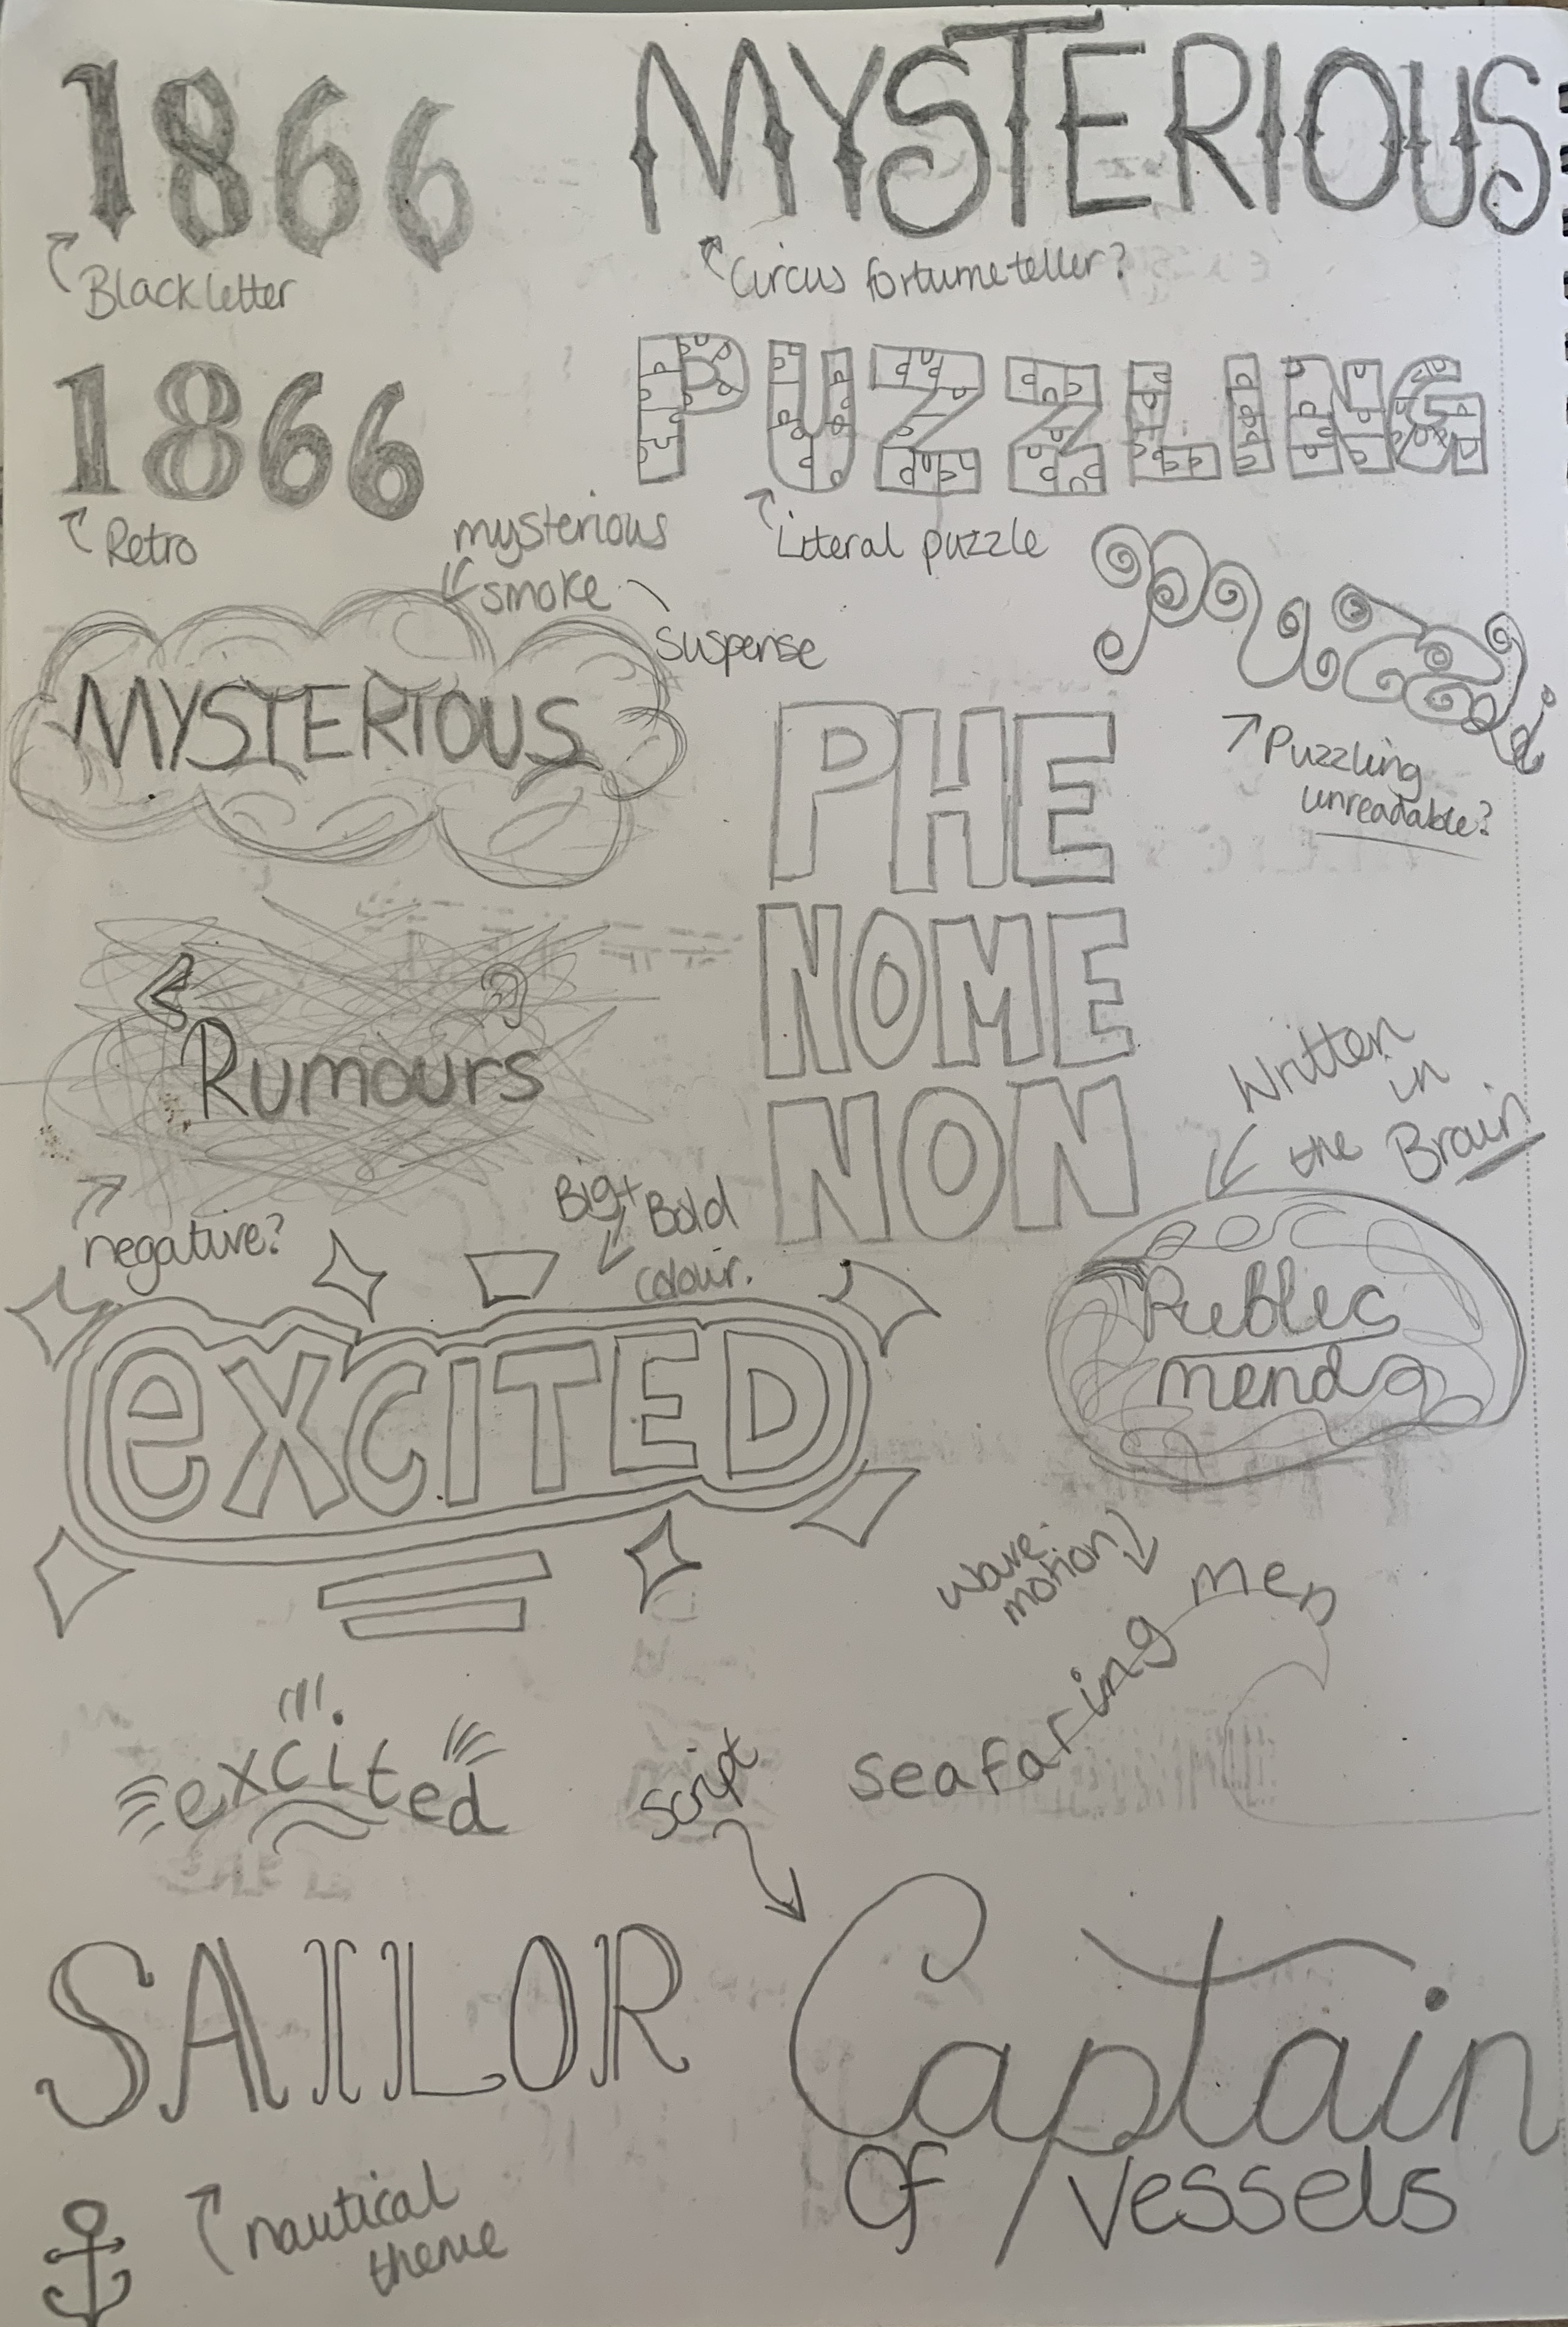 1866
Blackletter
MYSTERIOUS
Circus fortume teller?
1866
Retro
PUZZLING
Literal puzzle
mysterious
smoke
suspense
MYSTERIOUS
Puzzling
unreadable?
PHE
NOME
NON
Rumours
negative?
Written
in
the Brain
Public
mend
Big + Bold
colour.
eXCITED
wave
motion
seafaring men
excited
script
SAILOR
nautical
theme
Captain
Of Vessels